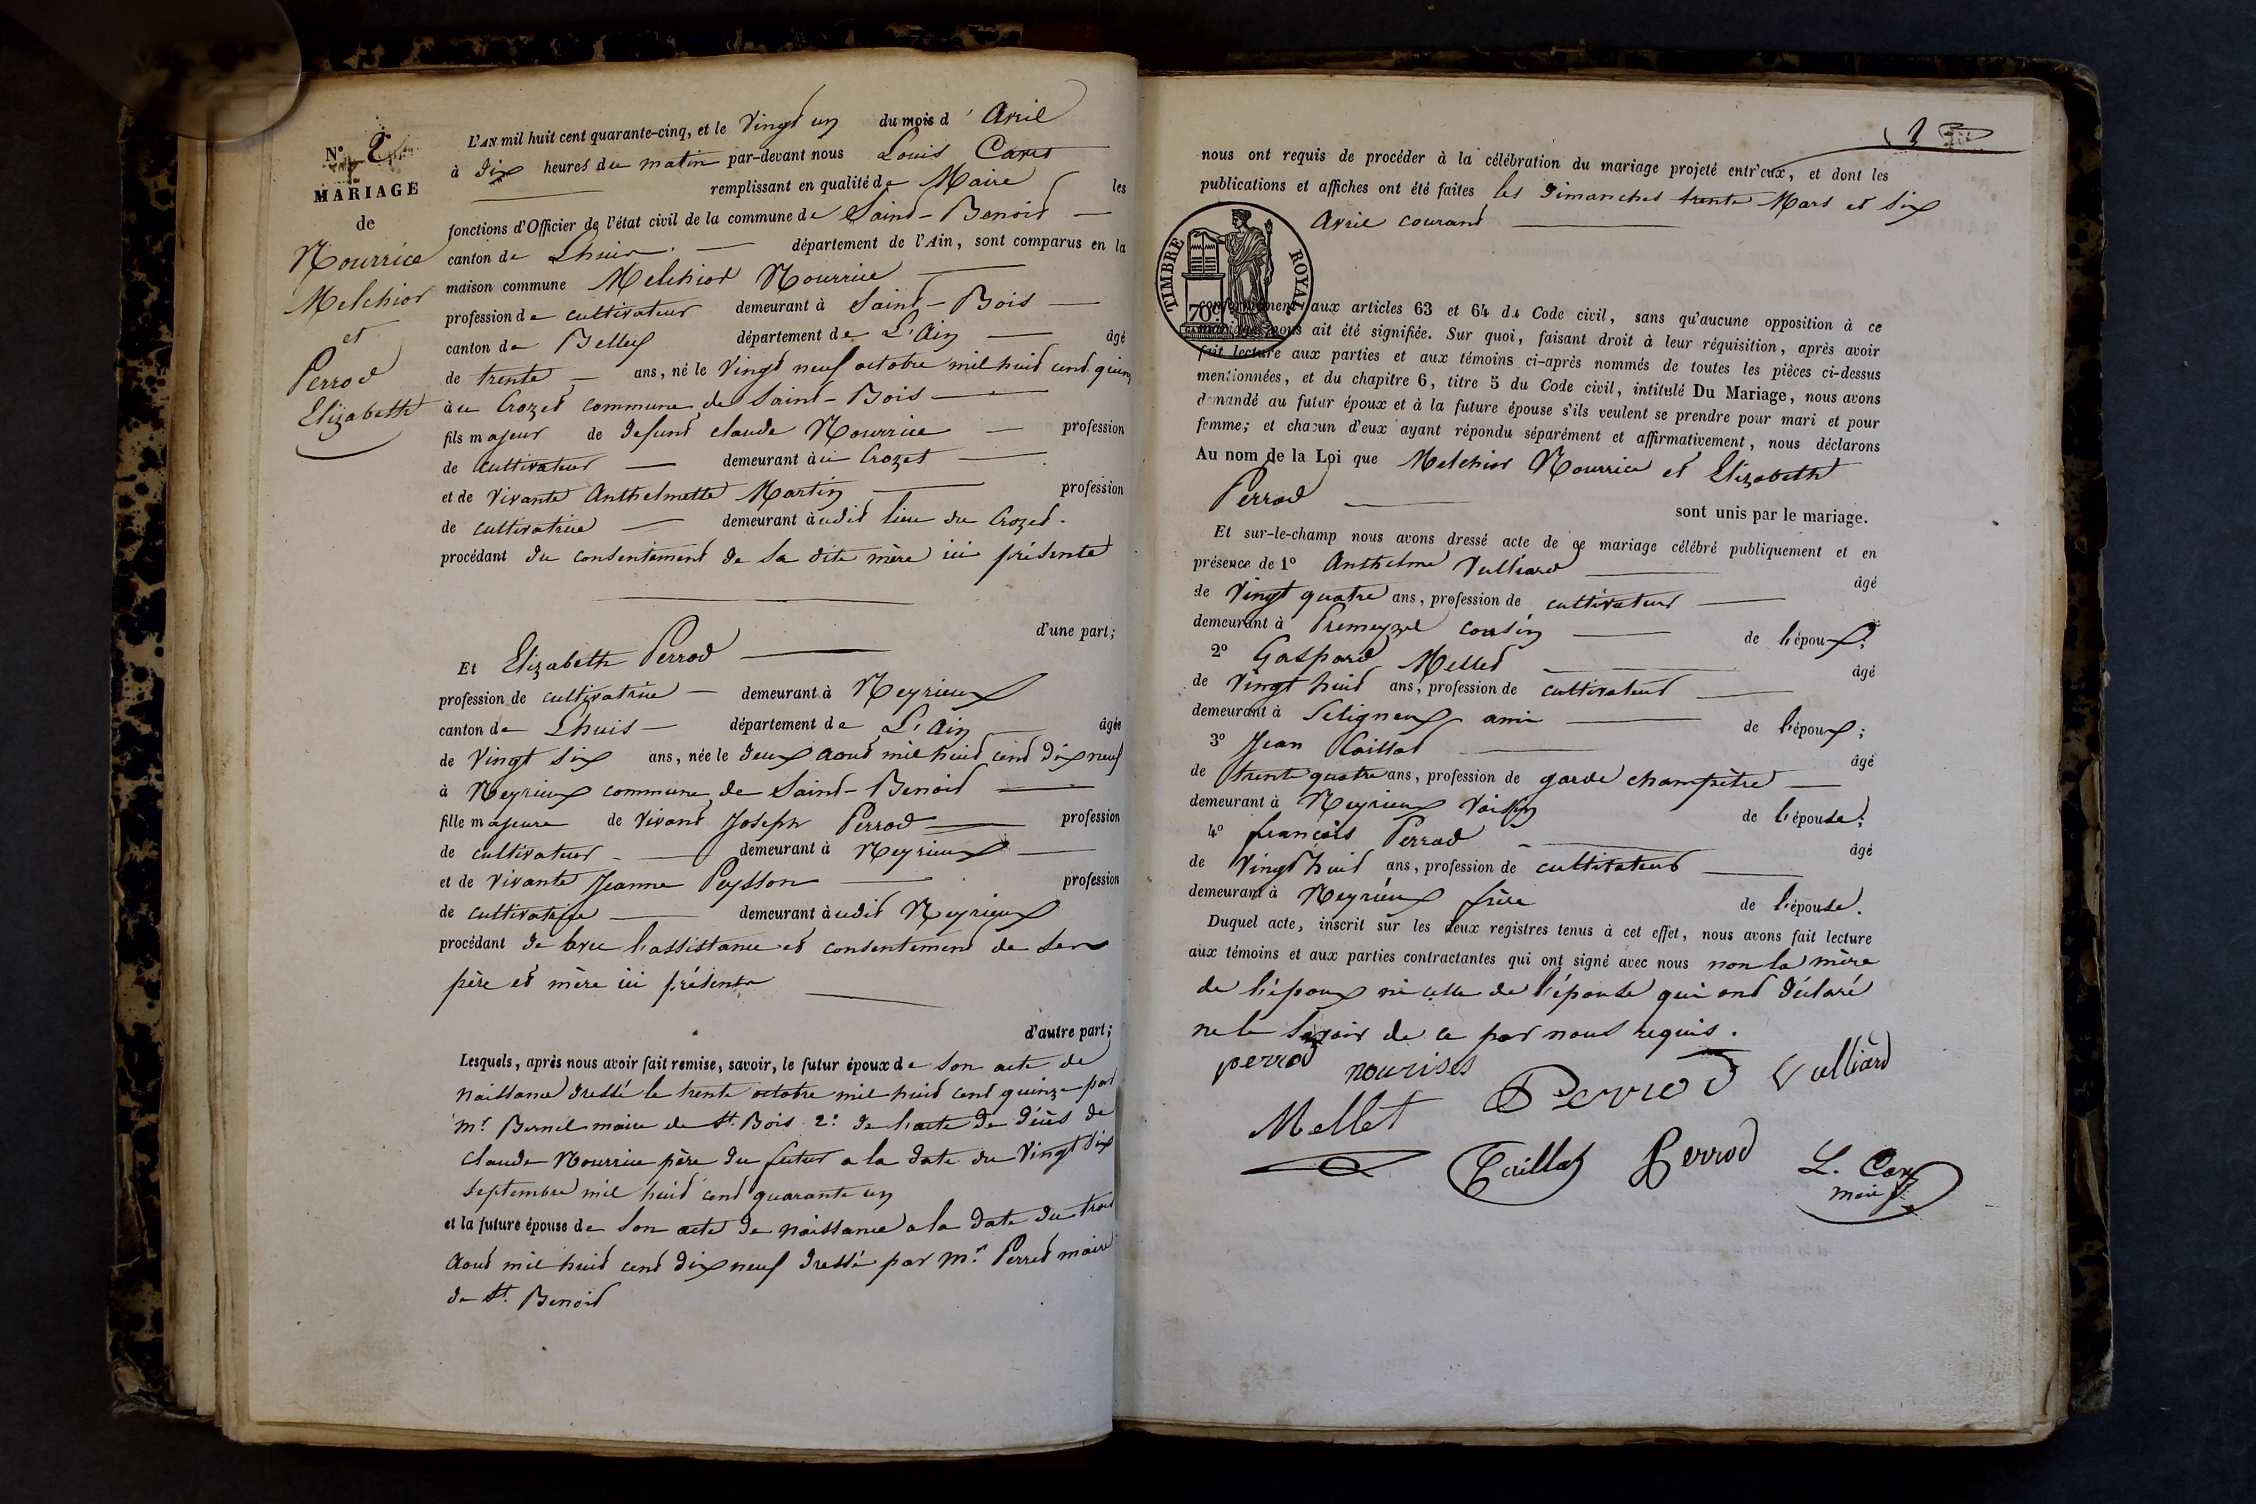 N° 2
MARIAGE
de
Nourrice
Melchior
et
Perrod
Elizabeth
L'AN mil huit cent quarante-cinq, et le Vingt un du mois d'Avril
à dix heures du matin par-devant nous Louis
remplissant en qualité de Maire les
fonctions d'Officier de l'état civil de la commune de Saint-Benoit
canton de Lhuis département de l'Ain, sont comparus en la
maison commune Melchior Nourrice
profession de cultivateur demeurant à Saint-Bois
canton de Belley département de L'Ain âgé
de trente ans, né le Vingt neuf octobre mil huit cent quinze
à au Crozet commune de Saint-Bois
fils majeur de defunt claude Nourrice profession
de cultivateur demeurant à au Crozet
et de vivante Anthelmette Martin profession
de cultivatrice demeurant audit lieu du Crozet.
procédant du consentement de sa dite mère ici présente
d'une part;
Et Elizabeth Perrod
profession de cultivatrice demeurant à Neyrieux
canton de Lhuis département de L'Ain âgée
de Vingt six ans, née le deux aout mil huit cent dix neuf
à Neyrieux commune de Saint-Benoit
fille majeure de vivant Joseph Perrod profession
de cultivateur demeurant à Neyrieux
et de vivante Jeanne Peysson profession
de cultivatrice demeurant audit Neyrieux
procédant de avec l'assistance et consentement de ses
père et mère ici présents
d'autre part;
Lesquels, après nous avoir fait remise, savoir, le futur époux de son acte de
naissance dressé le trente octobre mil huit cent quinze par
mr. maire de St. Bois 2° de l'acte de décès de
claude Nourrice père du futur a la date du Vingt dix
septembre mil huit cent quarante un
et la future épouse de son acte de naissance a la date du trois
Aout mil huit cent dix neuf dressé par mr. Perret maire
de St. Benoit
2
nous ont requis de procéder à la célébration du mariage projeté entr'eux, et dont les
publications et affiches ont été faites les dimanches trente Mars et six
Avril courant
TIMBRE ROYAL
70c
conformément aux articles 63 et 64 du Code civil, sans qu'aucune opposition à ce
mariage nous ait été signifiée. Sur quoi, faisant droit à leur réquisition, après avoir
fait lecture aux parties et aux témoins ci-après nommés de toutes les pièces ci-dessus
mentionnées, et du chapitre 6, titre 5 du Code civil, intitulé Du Mariage, nous avons
demandé au futur époux et à la future épouse s'ils veulent se prendre pour mari et pour
femme; et chacun d'eux ayant répondu séparément et affirmativement, nous déclarons
Au nom de la Loi que Melchior Nourrice et Elizabeth
Perrod
sont unis par le mariage.
Et sur-le-champ nous avons dressé acte de ce mariage célébré publiquement et en
présence de 1° Anthelme Vulliard âgé
de Vingt quatre ans, profession de cultivateur
demeurant à Premeyzel cousin de l'époux;
2° Gaspard Mellet âgé
de Vingt huit ans, profession de cultivateur
demeurant à Seligneux ami de l'époux;
3° Jean Caillat âgé
de trente quatre ans, profession de garde champêtre
demeurant à Neyrieux Voisin de l'épouse;
4° françois Perrod âgé
de Vingt huit ans, profession de cultivateur
demeurant à Neyrieux frère de l'épouse.
Duquel acte, inscrit sur les deux registres tenus à cet effet, nous avons fait lecture
aux témoins et aux parties contractantes qui ont signé avec nous non la mère
de l'époux ni celle de l'épouse qui ont déclaré
ne le savoir de ce par nous requis.
perrod nourises Perrod Vulliard
Mellet Caillat Perrod L.
maire